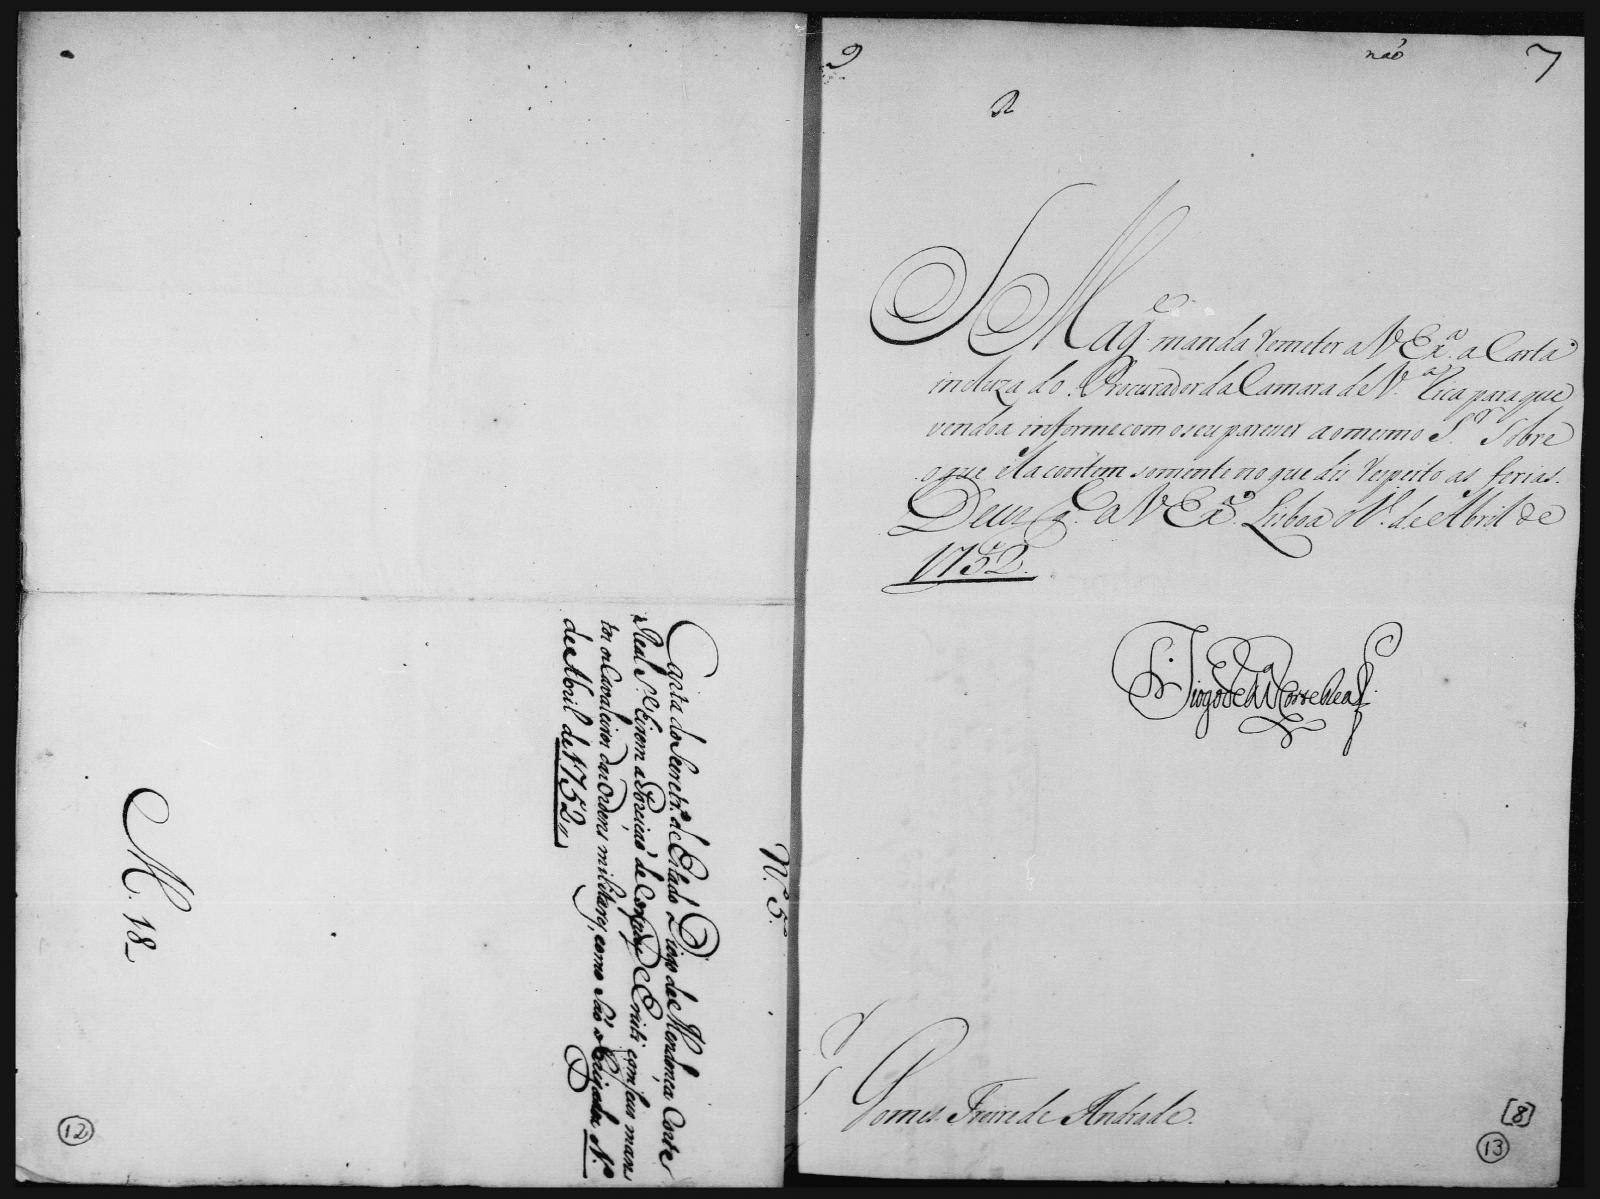 N.º 5.
Carta do Secretr.º de Estado Diogo de Mendonça Corte
Real S.e
de Cruis com seus man
tos os Cavaleiros das Ordens militares, como São
de Abril de 1752
M. 18
12
9
não
7
R
S Mag.e manda remeter a V Ex.a a Carta
incluza do Procurador da Camara de V.a Rica para que
vendoa informe com o seu parecer ao mesmo S.r Sobre
o que ella contem somente no que dis respeito as ferias.
Deus g.e a V Ex.a Lisboa de Abril de
1752.
Diogo de M Corte Real
S.r Gomes Freire de Andrade.
[8]
13